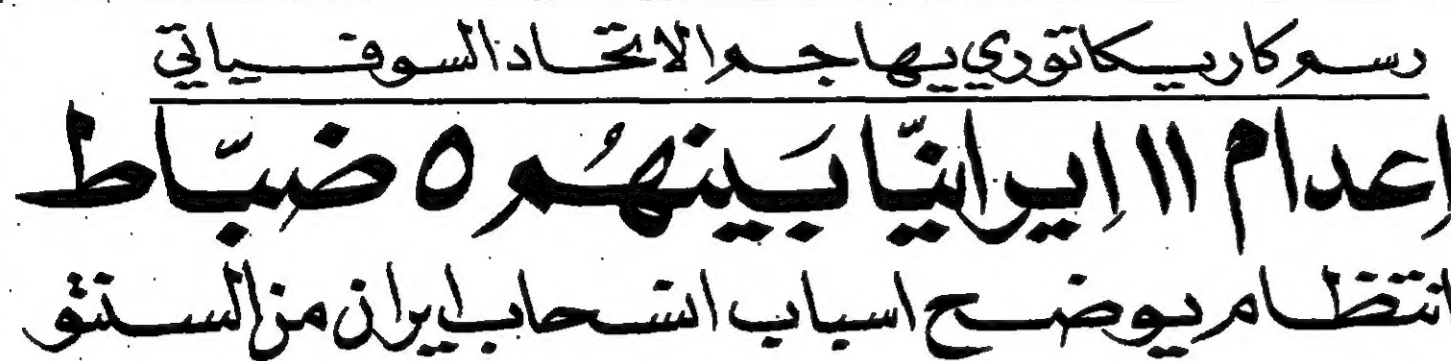 رسم كاريكاتوري يهاجم الاتحاد السوفياتي
إعدام ١١ إيرانيّا بَينهُم ٥ ضبّاط
انتظام يوضح اسباب انسحاب ايران من السنتو